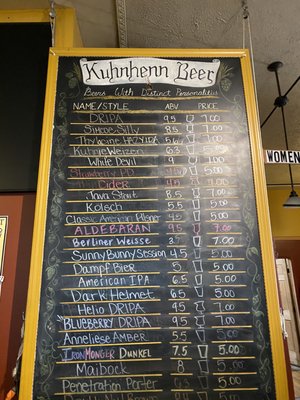 Kuhnhenn Beer
Beers With Distinct Personalities
NAME/STYLE ABV PRICE
DRIPA 9.5 7.00
Simcoe Silly 8.5 7.00
Kuhnie Weizen 5.00
White Devil 9 5.00
Strawberry
Cider
Java Stout 5.00
Kolsch 5.5 5.00
Classic American Pilsner 4.5 5.00
ALDEBARAN 9.5 7.00
Berliner Weisse 7.00
Sunny Bunny Session 4.5 5.00
Dampf Bier 5 5.00
American IPA 6.5 5.00
Dark Helmet 6.5 5.00
Helio DRIPA 9.5 7.00
BLUEBERRY DRIPA 9.5 7.00
Anneliese Amber 5.5 5.00
IRON MONGER DUNKEL 7.5 5.00
Maibock 8 5.00
Penetration Porter 5.00
WOMEN